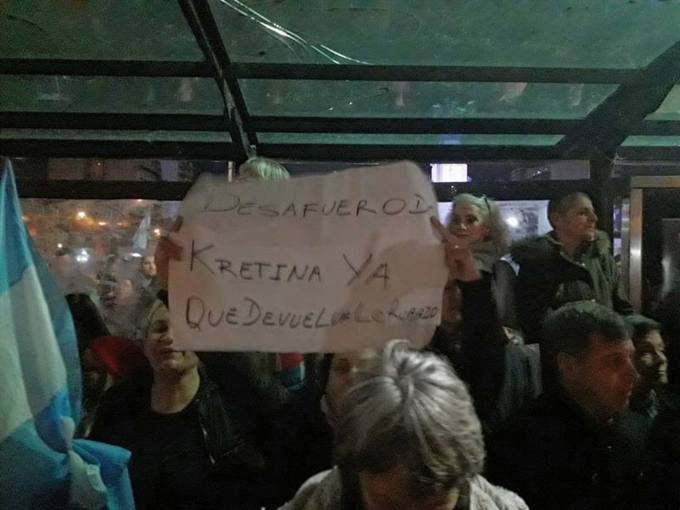 DESAFUERO D
KRETINA YA
QUE DEVUELVA LO RUBADO